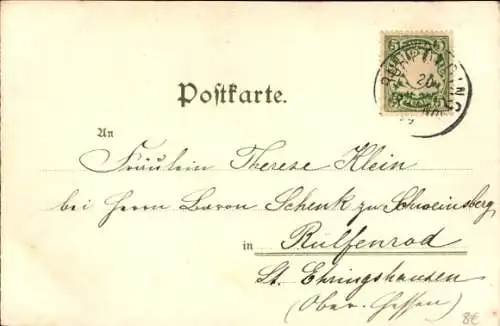 5 5
20
Postkarte.
An
Fräulein Therese Klein
bei Herrn Baron Schenk zu Schweinsberg
in Rülfenrod
St. Ehringshausen
(Ober-Hessen)
8€